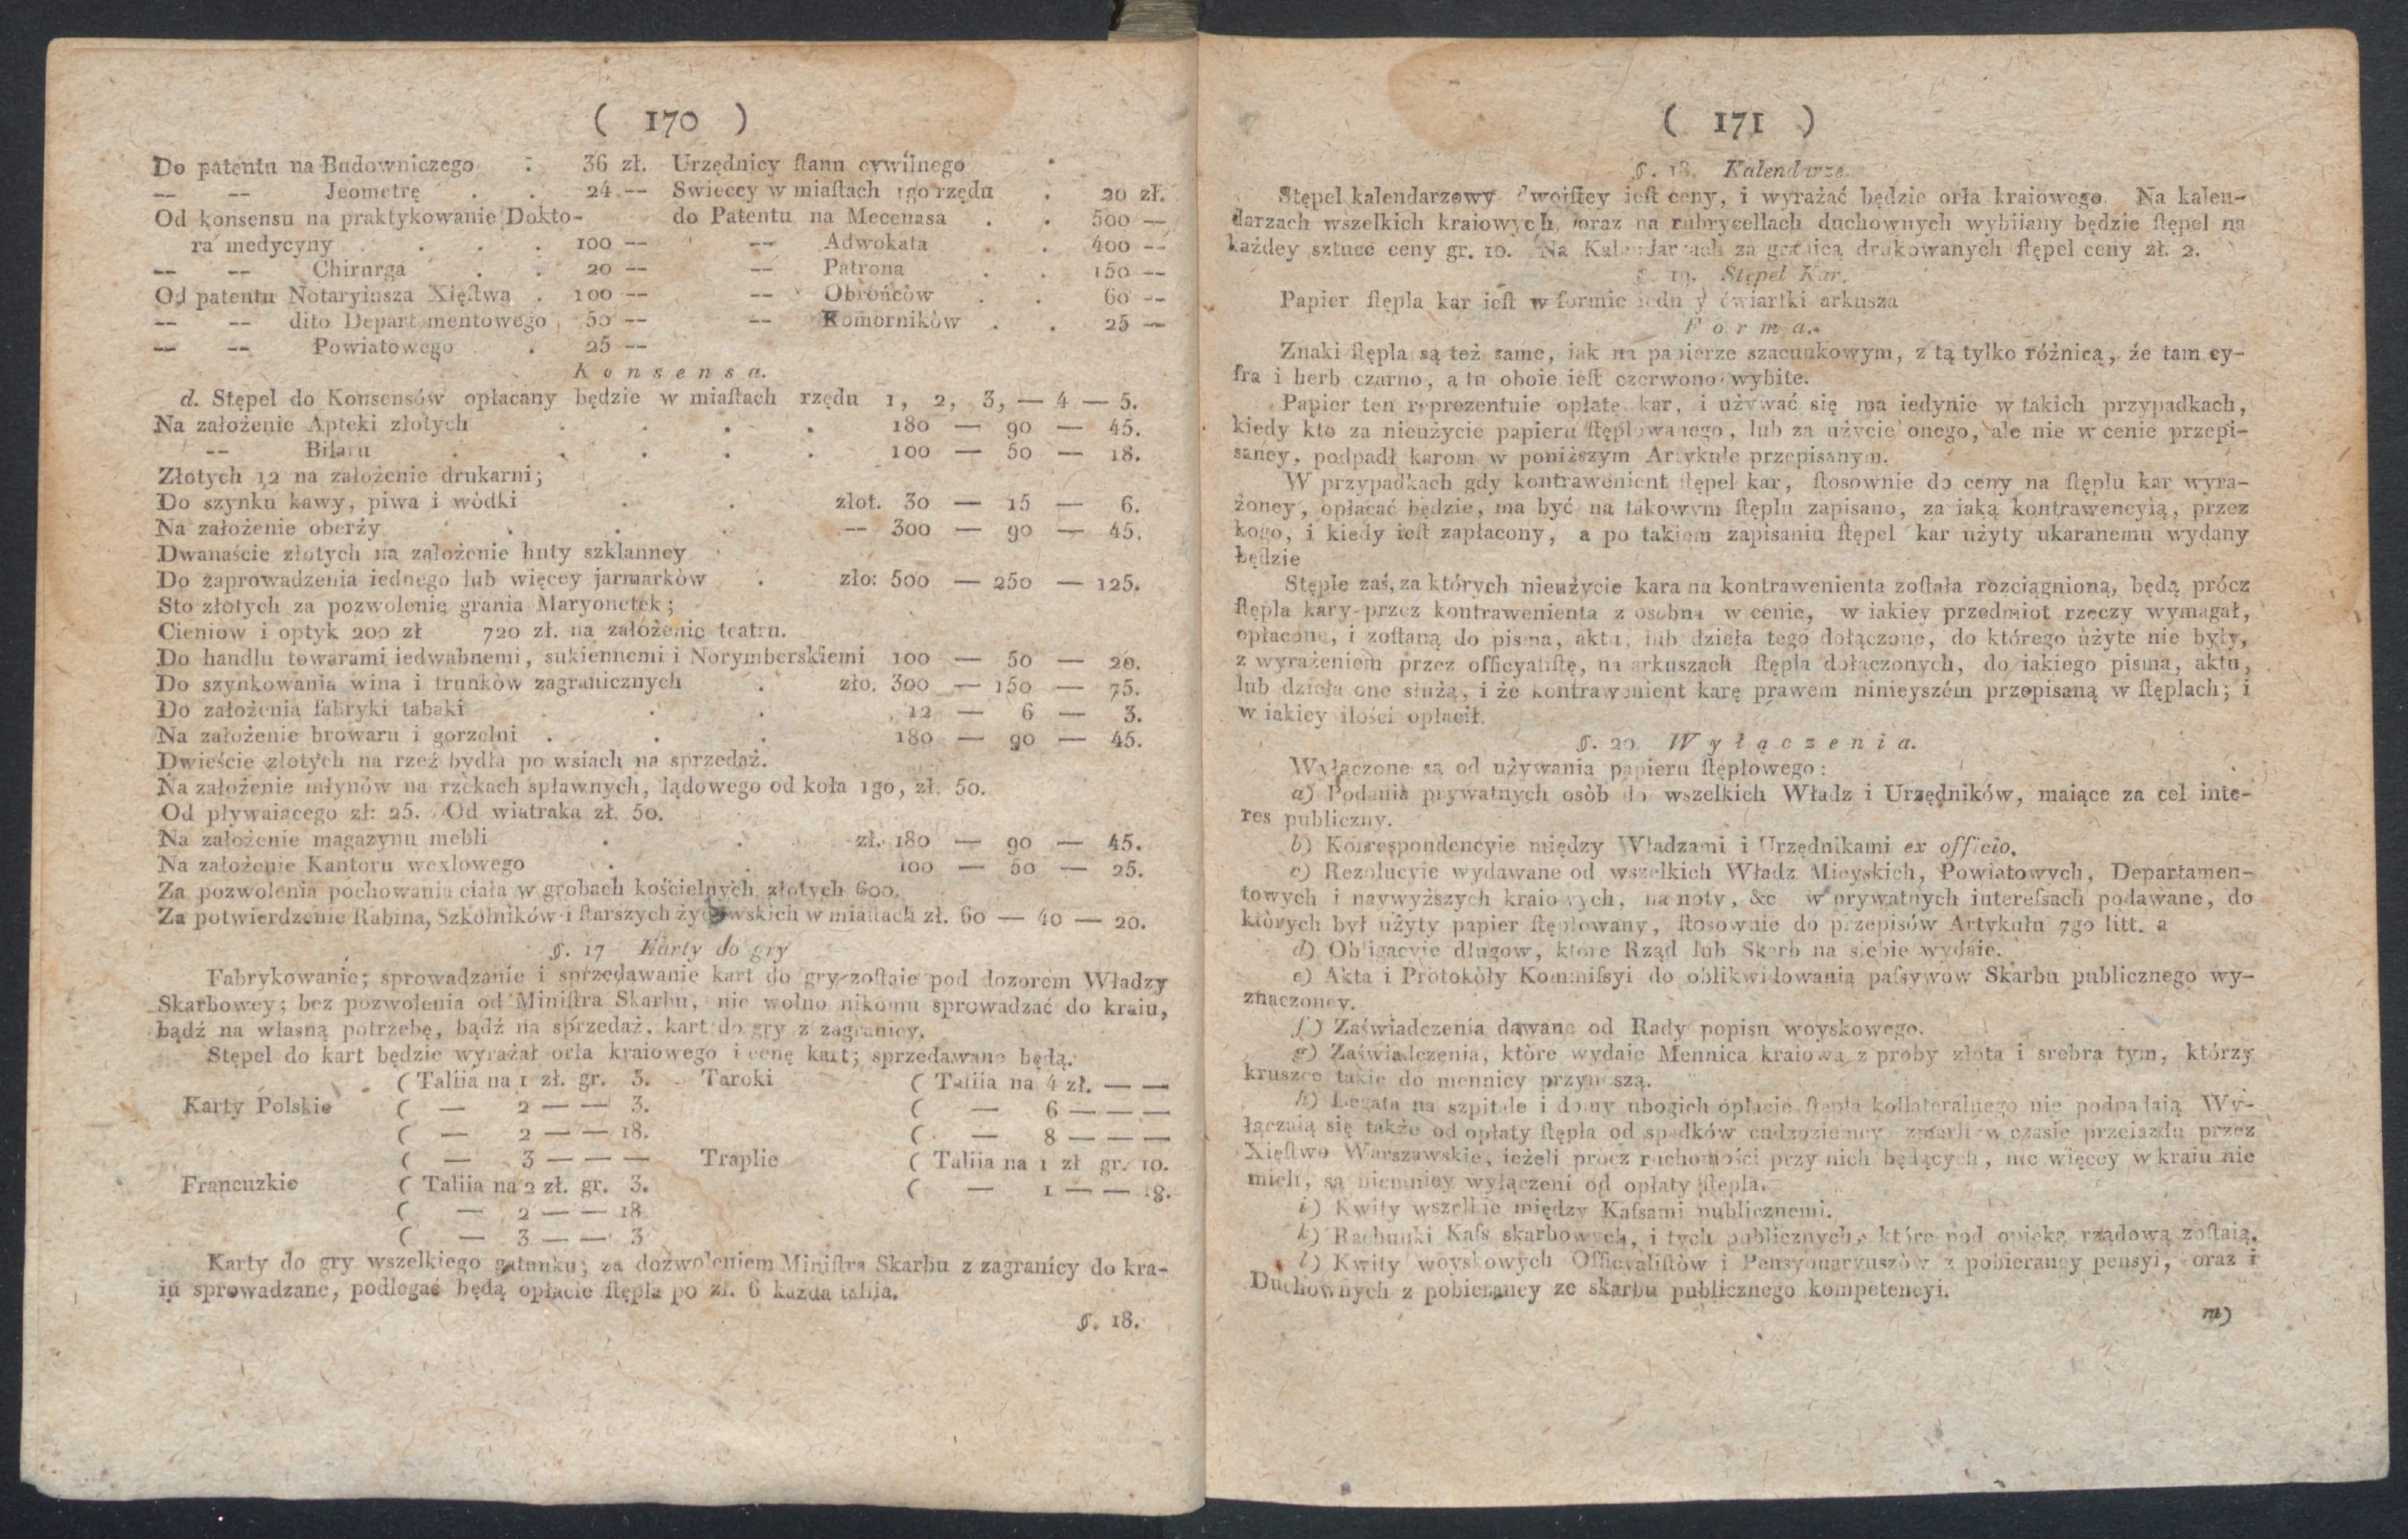 ( 170 )
Do patentu na Budowniczego . 36 zł.
— — Jeometrę . . 24 —
Od konsensu na praktykowanie Dokto-
ra medycyny . . . 100 —
— — Chirurga . . 20 —
Od patentu Notaryiusza Xięſtwa . 100 —
— — dito Departamentowego 50 —
— — Powiatowego . 25 —
Urzędnicy ſtanu cywilnego .
Swieccy w miaſtach 1go rzędu . 20 zł.
do Patentu na Mecenasa . . 500 —
— Adwokata . . 400 —
— Patrona . . 150 —
— Obrońców . . 60 —
— Komorników . . 25 —
Konsensa.
d. Stępel do Konsensów opłacany będzie w miaſtach rzędu 1, 2, 3, — 4 — 5.
Na założenie Apteki złotych . . . . 180 — 90 — 45.
— Bilaru . . . . . 100 — 50 — 18.
Złotych 12 na założenie drukarni;
Do szynku kawy, piwa i wódki . . złot. 30 — 15 — 6.
Na założenie oberży . . . — 300 — 90 — 45.
Dwanaście złotych na założenie huty szklanney
Do zaprowadzenia iednego lub więcey jarmarków . zło: 500 — 250 — 125.
Sto złotych za pozwolenie grania Maryonetek;
Cieniow i optyk 200 zł 720 zł. na założenie teatru.
Do handlu towarami iedwabnemi, sukiennemi i Norymberskiemi 100 — 50 — 20.
Do szynkowania wina i trunków zagranicznych . zło. 300 — 150 — 75.
Do założenia fabryki tabaki . . . 12 — 6 — 3.
Na założenie browaru i gorzelni . . . 180 — 90 — 45.
Dwieście złotych na rzeź bydła po wsiach na sprzedaż.
Na założenie młynów na rzekach spławnych, lądowego od koła 1go, zł. 50.
Od pływaiącego zł: 25. Od wiatraka zł. 50.
Na założenie magazynu mebli . . zł. 180 — 90 — 45.
Na założenie Kantoru wexlowego . . 100 — 50 — 25.
Za pozwolenia pochowania ciała w grobach kościelnych złotych 600.
Za potwierdzenie Rabina, Szkolników i ſtarszych żydowskich w miaſtach zł. 60 — 40 — 20.
§. 17 Karty do gry
Fabrykowanie; sprowadzanie i sprzedawanie kart do gry zoſtaie pod dozorem Władzy
Skarbowey; bez pozwolenia od Miniſtra Skarbu, nie wolno nikomu sprowadzać do kraiu,
bądź na własną potrzebę, bądź na sprzedaż, kart do gry z zagranicy.
Stępel do kart będzie wyrażał orła kraiowego i cenę kart; sprzedawane będą.
Karty Polskie ( Taliia na 1 zł. gr. 3.
( — 2 — — 3.
( — 2 — — 18.
( — 3 — — —
Francuzkie ( Taliia na 2 zł. gr. 3.
( — 2 — — 18
( — 3 — — 3
Taroki ( Taliia na 4 zł. — —
( — 6 — — —
( — 8 — — —
Traplie ( Taliia na 1 zł gr. 10.
( — 1 — — 18.
Karty do gry wszelkiego gatunku; za dozwoleniem Miniſtra Skarbu z zagranicy do kra-
iu sprowadzane, podlegać będą opłacie ſtępla po zł. 6 każda taliia.
§. 18.
( 171 )
§. 18. Kalendarze.
Stępel kalendarzowy dwoiſtey ieſt ceny, i wyrażać będzie orła kraiowego. Na kalen-
darzach wszelkich kraiowych, oraz na rubrycellach duchownych wybiiany będzie ſtępel na
każdey sztuce ceny gr. 10. Na Kalendarzach za granicą drukowanych ſtępel ceny zł. 2.
§. 19. Stępel Kar.
Papier ſtępla kar ieſt w formie iedney ćwiartki arkusza
Forma.
Znaki ſtępla są też same, iak na papierze szacunkowym, z tą tylko różnicą, że tam cy-
fra i herb czarno, a tu oboie ieſt czerwono wybite.
Papier ten reprezentuie opłatę kar, i używać się ma iedynie w takich przypadkach,
kiedy kto za nieużycie papieru ſtęplowanego, lub za użycie onego, ale nie w cenie przepi-
saney, podpadł karom w poniższym Artykule przepisanym.
W przypadkach gdy kontrawenient ſtępel kar, ſtosownie do ceny na ſtęplu kar wyra-
żoney, opłacać będzie, ma być na takowym ſtęplu zapisano, za iaką kontrawencyią, przez
kogo, i kiedy ieſt zapłacony, a po takiem zapisaniu ſtępel kar użyty ukaranemu wydany
będzie
Stęple zaś, za których nieużycie kara na kontrawenienta zoſtała rozciągnioną, będą prócz
ſtępla kary przez kontrawenienta z osobna w cenie, w iakiey przedmiot rzeczy wymagał,
opłacone, i zoſtaną do pisma, aktu, lub dzieła tego dołączone, do którego użyte nie były,
z wyrażeniem przez officyaliſtę, na arkuszach ſtępla dołączonych, do iakiego pisma, aktu,
lub dzieła one służą, i że kontrawenient karę prawem ninieyszém przepisaną w ſtęplach; i
w iakiey ilości opłacił.
§. 20. Wyłączenia.
Wyłączone są od używania papieru ſtęplowego:
a) Podania prywatnych osòb do wszelkich Władz i Urzędników, maiące za cel inte-
res publiczny.
b) Korrespondencyie między Władzami i Urzędnikami ex officio.
c) Rezolucyie wydawane od wszelkich Władz Mieyskich, Powiatowych, Departamen-
towych i naywyższych kraiowych, na noty, &c. w prywatnych intereſsach podawane, do
których był użyty papier ſtęplowany, ſtosownie do przepisów Artykułu 7go litt. a
d) Obligacyie długow, ktòre Rząd lub Skarb na siebie wydaie.
e) Akta i Protokòły Kommiſsyi do oblikwidowania paſsywów Skarbu publicznego wy-
znaczoney.
f) Zaświadczenia dawane od Rady popisu woyskowego.
g) Zaświadczenia, ktòre wydaie Mennica kraiowa z proby złota i srebra tym, którzy
kruszce takie do mennicy przynoszą.
h) Legata na szpitale i domy ubogich opłacie ſtępla kollateralnego nie podpadaią Wy-
łączaią się także od opłaty ſtępla od spadków cudzoziemcy zmarli w czasie przeiazdu przez
Xięſtwo Warszawskie, ieżeli prócz ruchomości przy nich będących, nic więcey w kraiu nie
mieli, są niemniey wyłączeni od opłaty ſtępla.
i) Kwity wszelkie między Kaſsami publicznemi.
k) Rachunki Kaſs skarbowych, i tych publicznych, które pod opieką rządową zoſtaią.
l) Kwity woyskowych Officyaliſtòw i Pensyonaryuszòw z pobieraney pensyi, oraz i
Duchownych z pobieraney ze skarbu publicznego kompetencyi.
m)